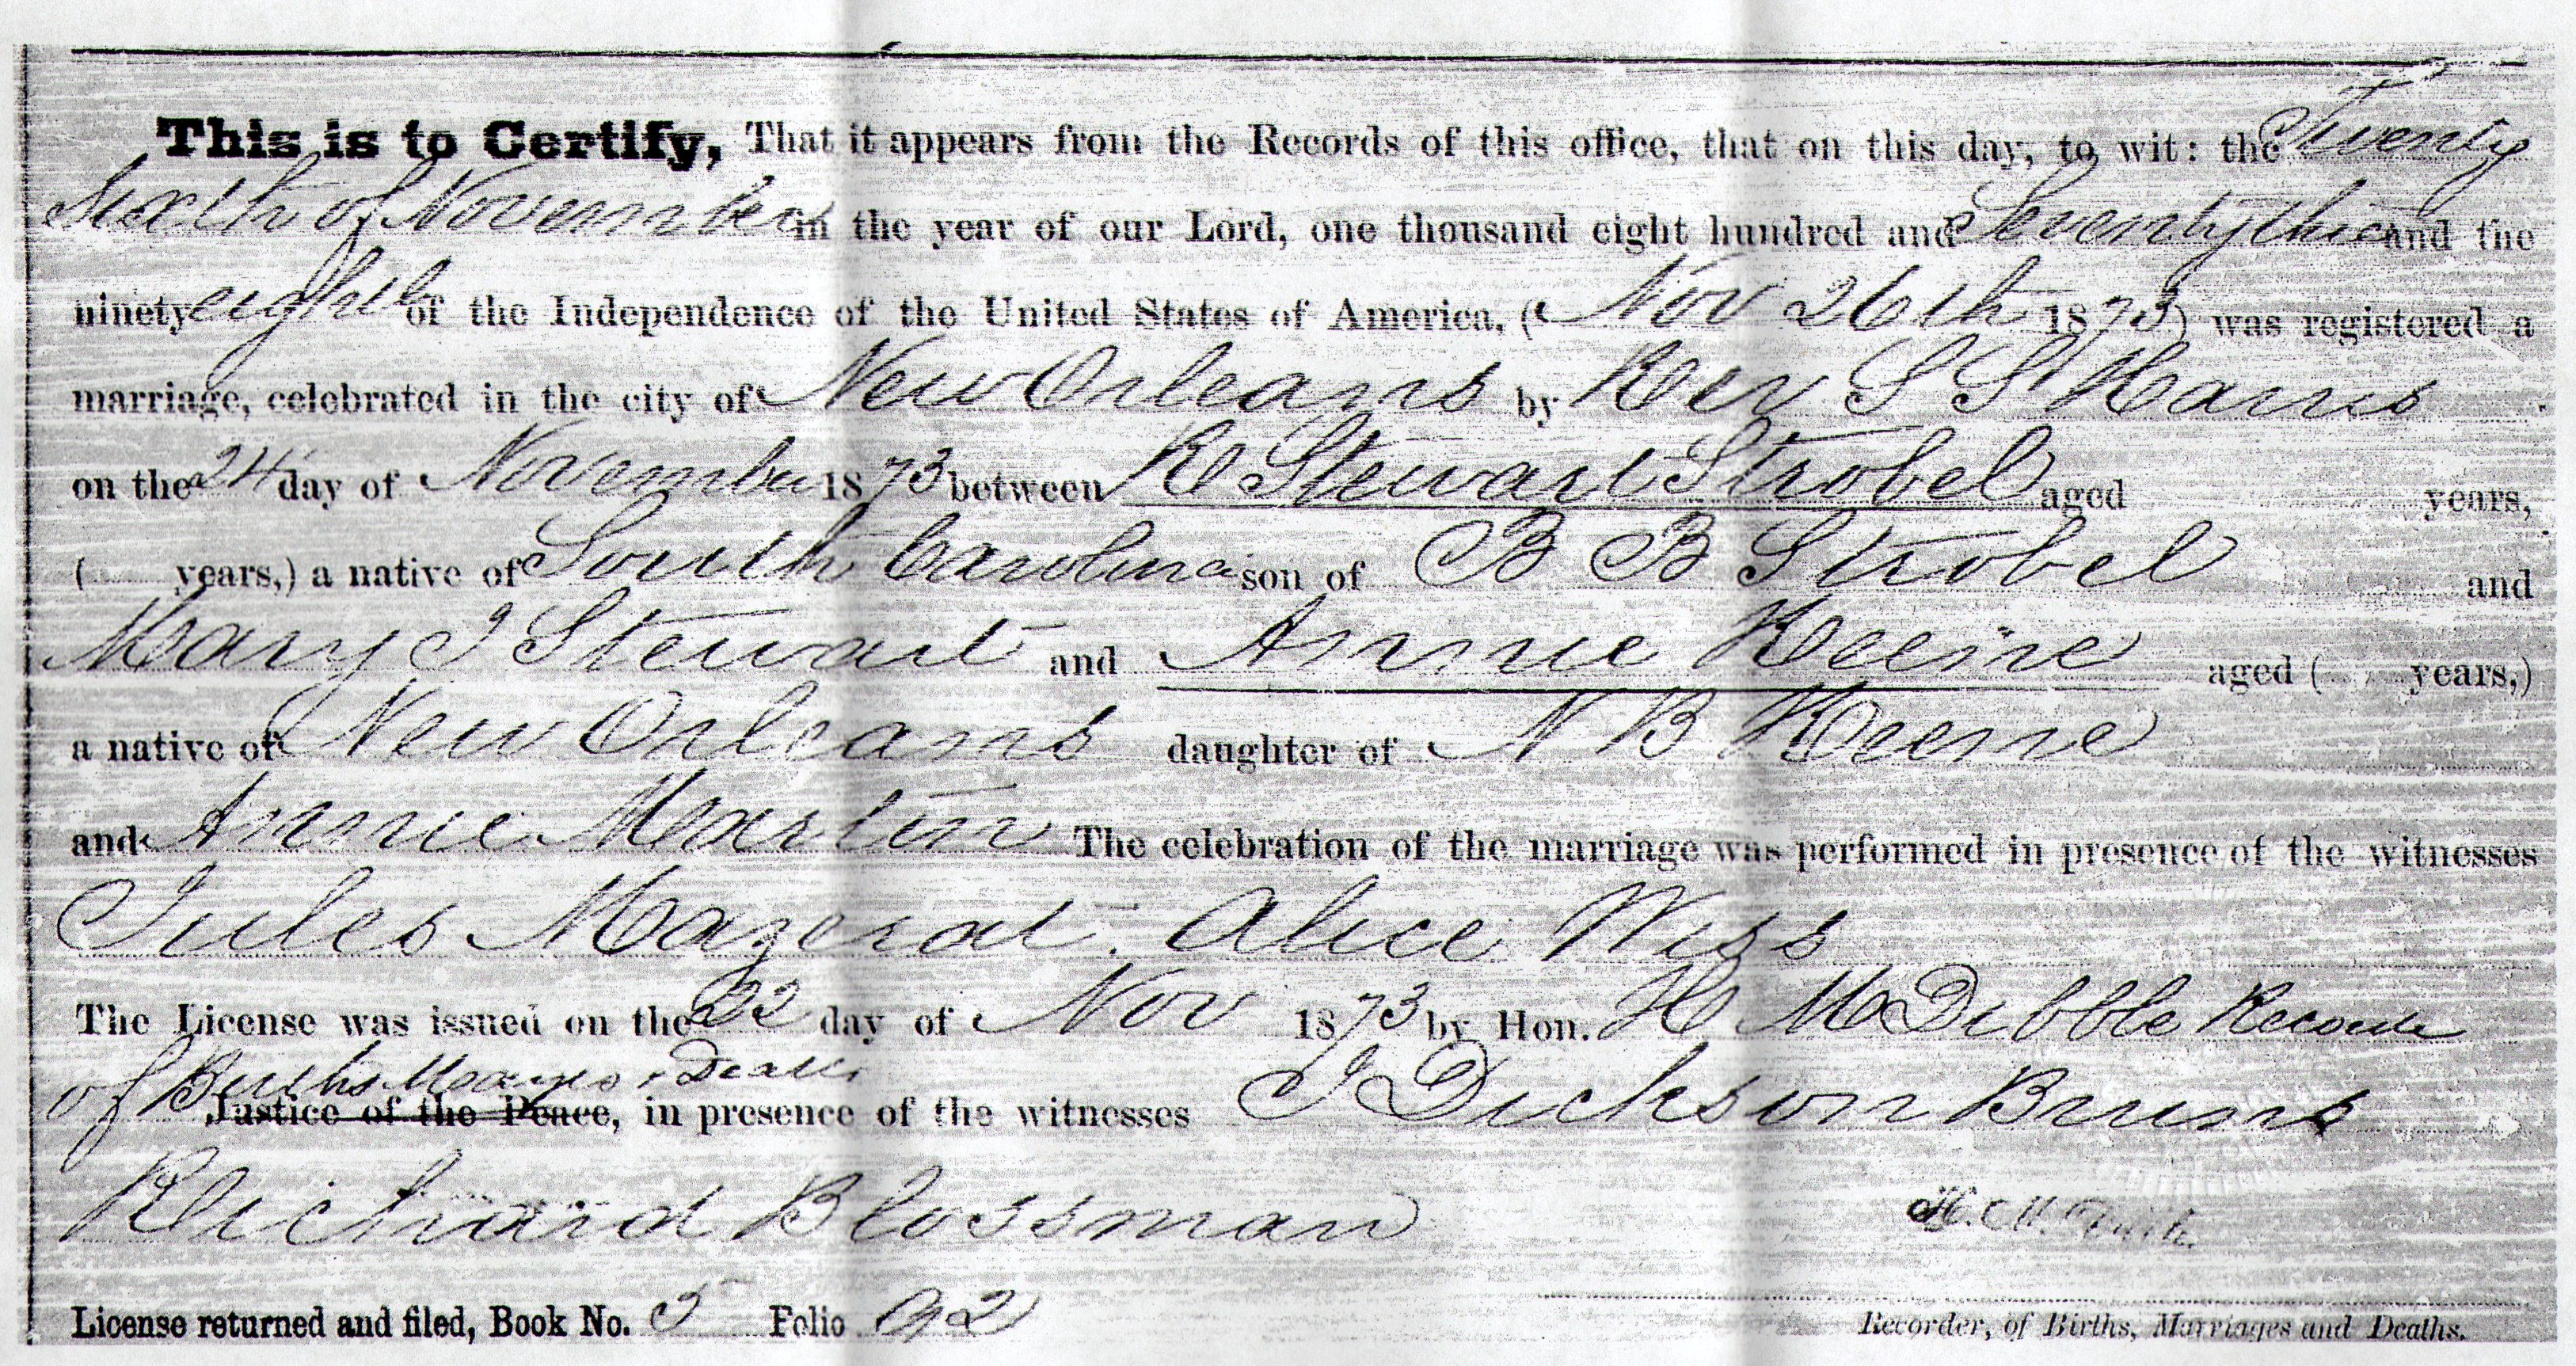 This is to Certify, That it appears from the Records of this office, that on this day, to wit: the Twenty
Sixth of November in the year of our Lord, one thousand eight hundred and Seventy thir and the
ninety eighth of the Independence of the United States of America, (Nov 26th 1873) was registered a
marriage, celebrated in the city of New Orleans by Rev S S Harris
on the 24 day of November 1873 between R Stewart Strobel aged years,
( years,) a native of South Carolina son of B B Strobel and
Mary J Stewart and Annie Keene aged ( years,)
a native of New Orleans daughter of N B Keene
and Annie Martin The celebration of the marriage was performed in presence of the witnesses
Jules Mazerat. Alice Wiss
The License was issued on the 22 day of Nov 1873 by Hon. H M Dibble Recorder
of Births Marges & Deaths
Justice of the Peace, in presence of the witnesses J Dickson Bruns
Richard Blossman
License returned and filed, Book No. 5 Folio 92
Recorder, of Births, Marriages and Deaths.